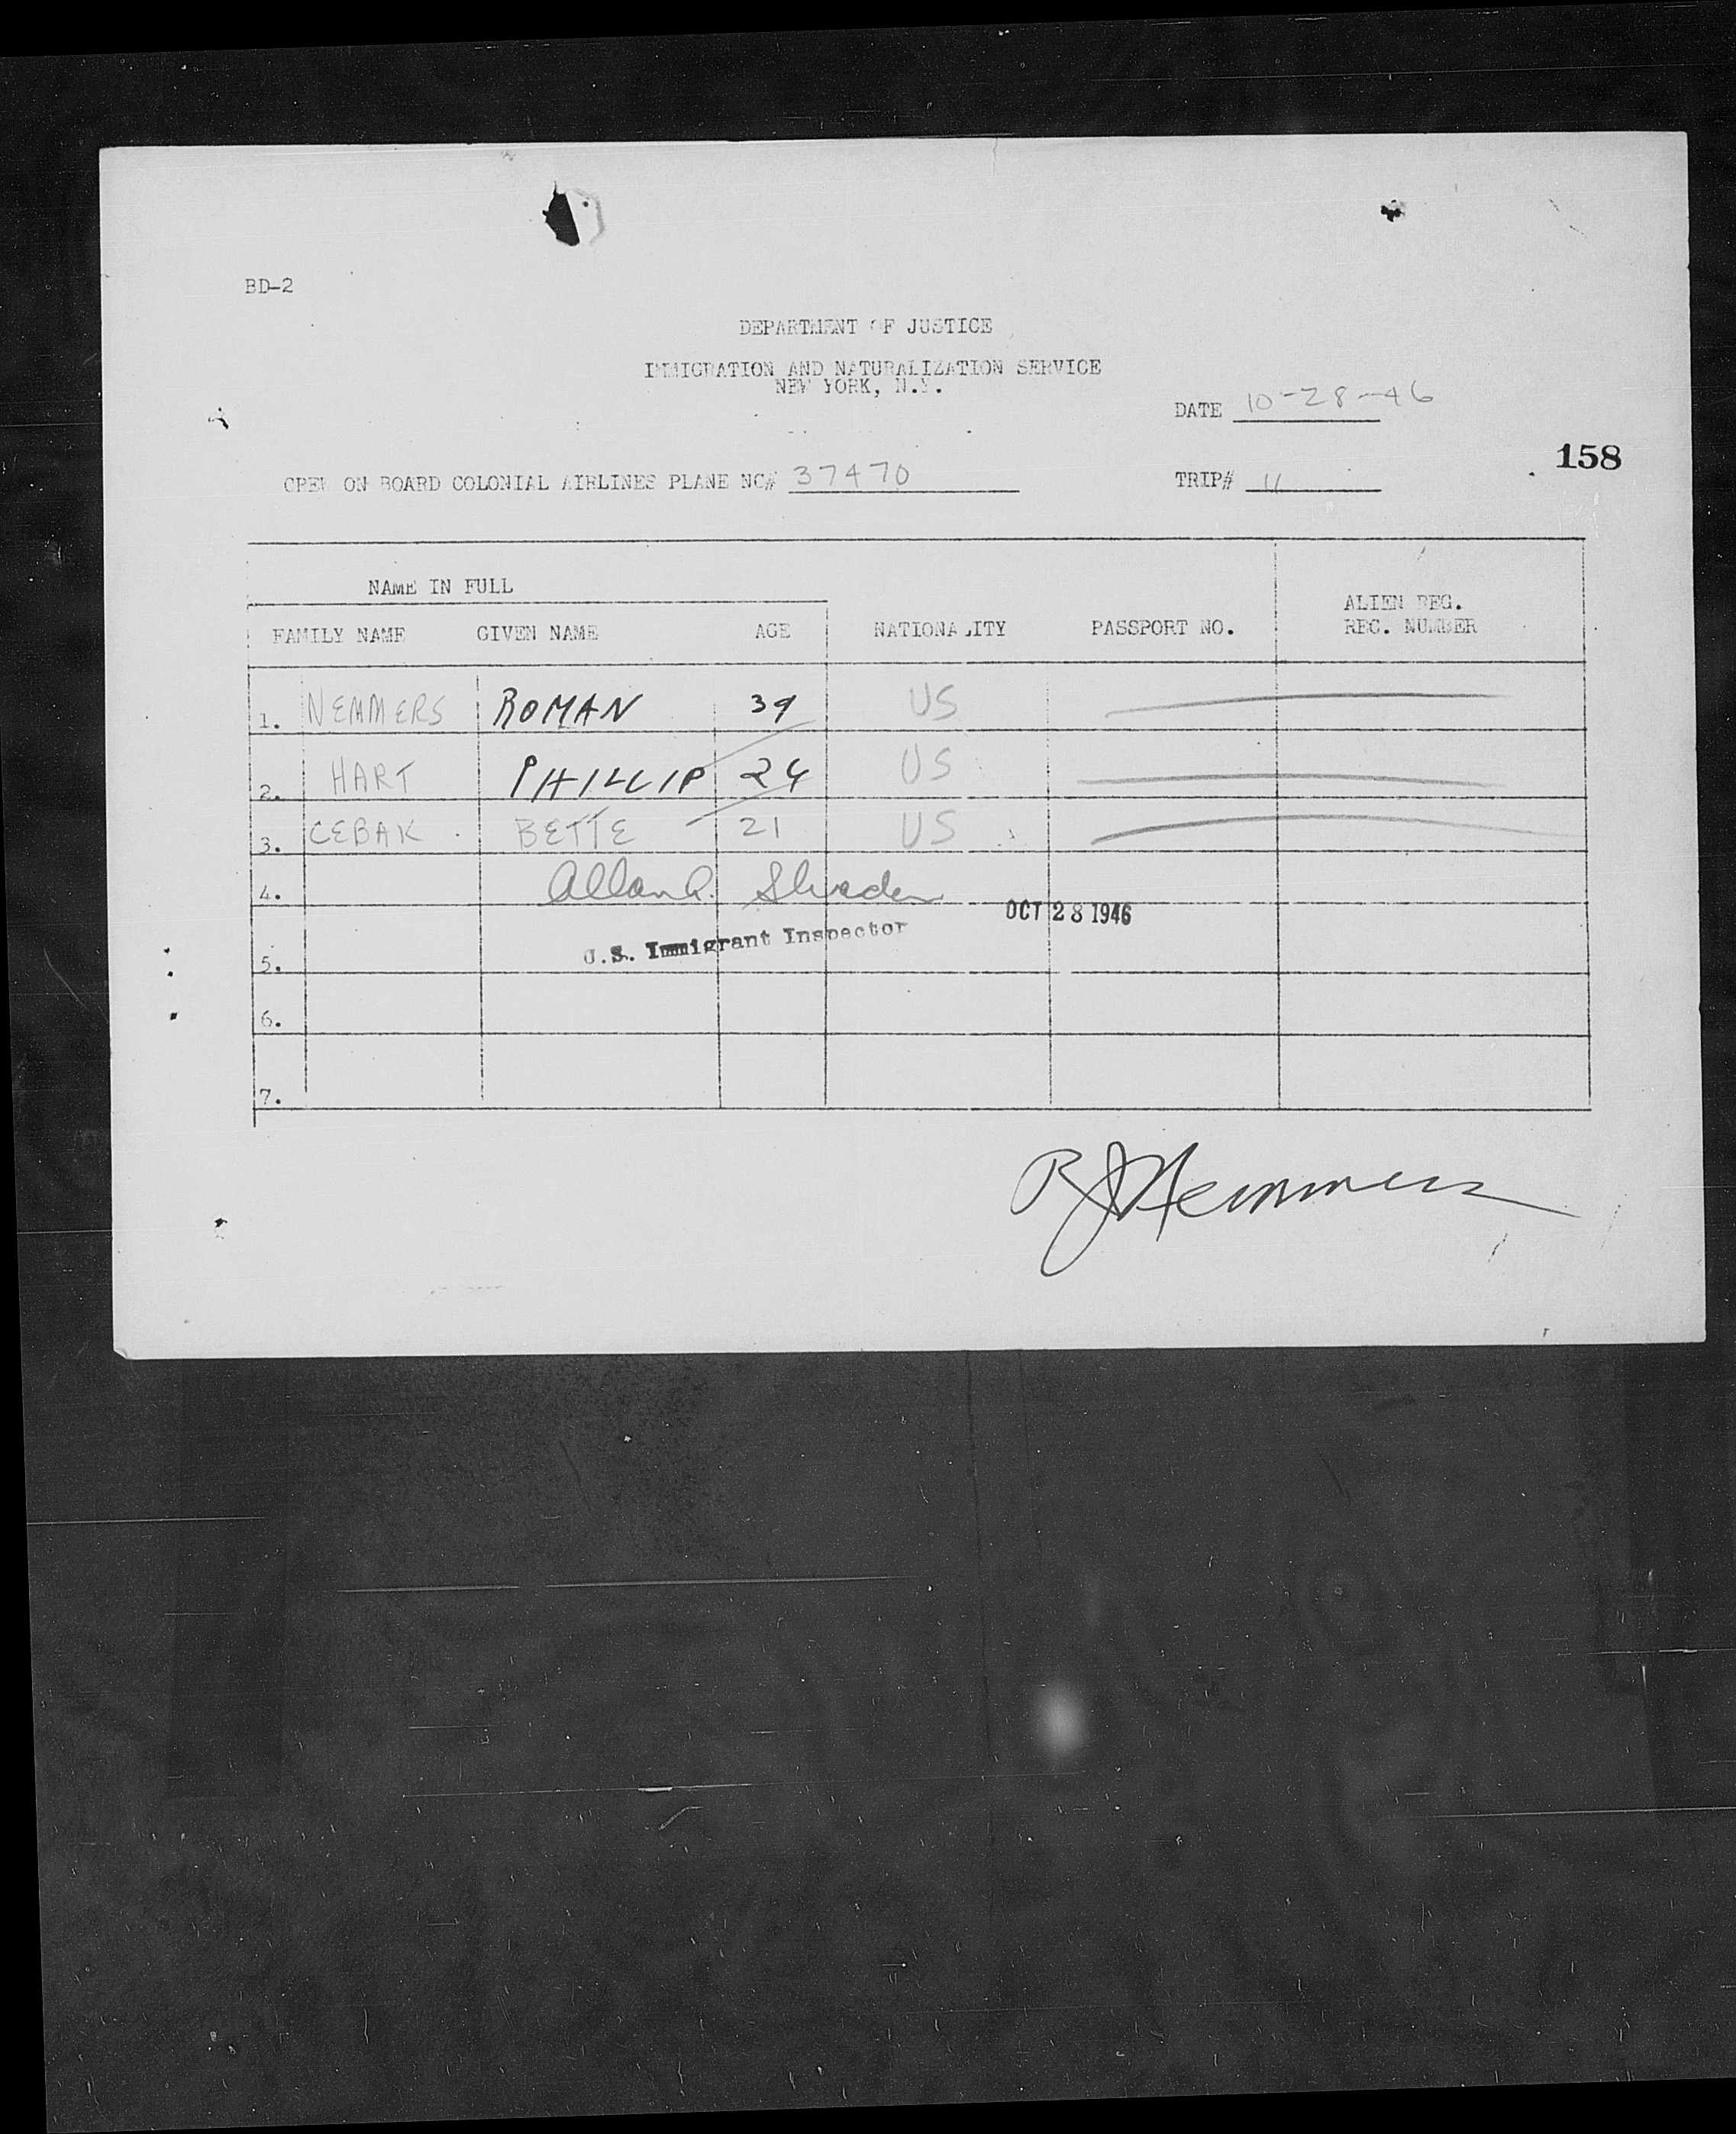 BD-2
DEPARTMENT OF JUSTICE
IMMIGRATION AND NATURALIZATION SERVICE
NEW YORK, N.Y.
DATE 10-28-46
158
CREW ON BOARD COLONIAL AIRLINES PLANE NC# 37470 TRIP# 11
NAME IN FULL
FAMILY NAME GIVEN NAME AGE NATIONALITY PASSPORT NO. ALIEN REG.
REC. NUMBER
1. NEMMERS ROMAN 39 US
2. HART PHILLIP 24 US
3. CEBAK BETTE 21 US
4. Allan
OCT 28 1946
U.S. Immigrant Inspector
5.
6.
7.
RJNemmers